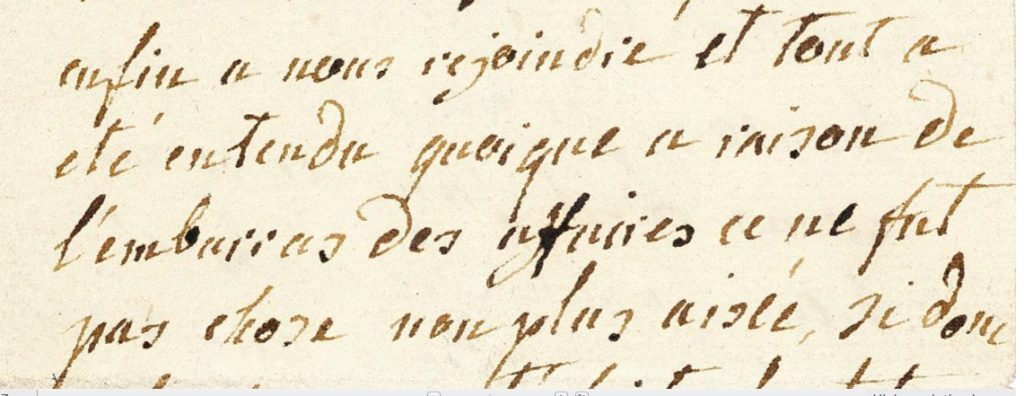 enfin a nous rejoindre et tout a
été entendu quoique a raison de
l'embarras des affaires ce ne fut
pas chose non plus aisée, si donc